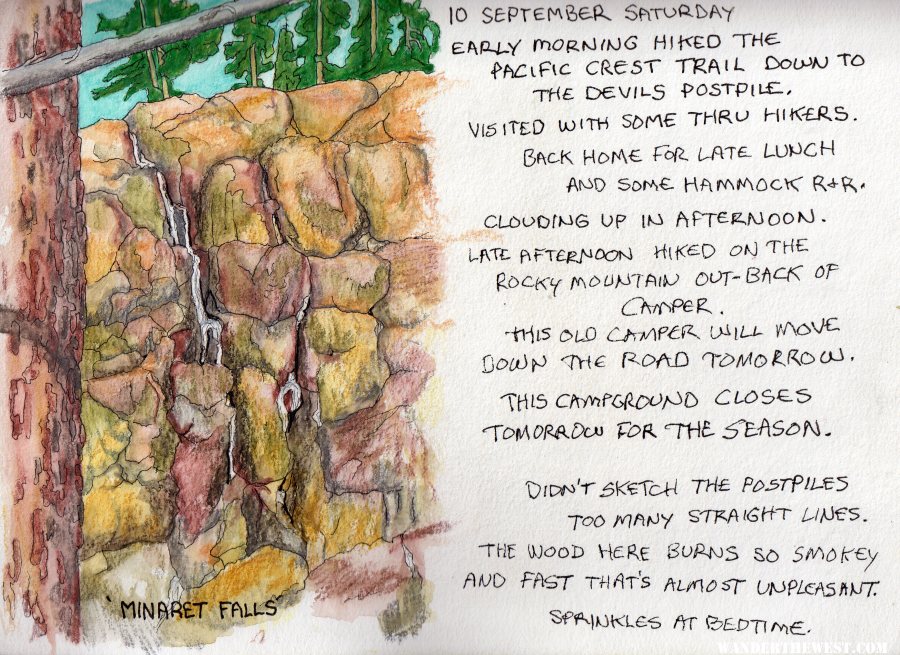 10 SEPTEMBER SATURDAY
EARLY MORNING HIKED THE
PACIFIC CREST TRAIL DOWN TO
THE DEVILS POSTPILE.
VISITED WITH SOME THRU HIKERS.
BACK HOME FOR LATE LUNCH
AND SOME HAMMOCK R+R.
CLOUDING UP IN AFTERNOON.
LATE AFTERNOON HIKED ON THE
ROCKY MOUNTAIN OUT-BACK OF
CAMPER.
THIS OLD CAMPER WILL MOVE
DOWN THE ROAD TOMORROW.
THIS CAMPGROUND CLOSES
TOMORROW FOR THE SEASON.
DIDN'T SKETCH THE POSTPILES
TOO MANY STRAIGHT LINES.
THE WOOD HERE BURNS SO SMOKEY
AND FAST THAT'S ALMOST UNPLEASANT.
SPRINKLES AT BEDTIME.
"MINARET FALLS"
WANDERTHEWEST.COM